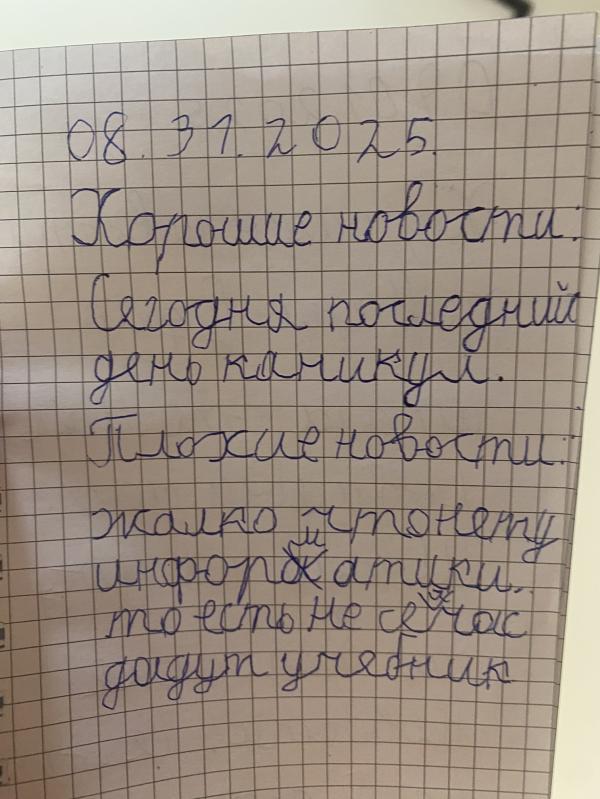 08.31.2025.
Хорошие новости:
Сегодня последний
день каникул.
Плохие новости:
жалко что нету
информатики.
то есть не сейчас
дадут учебник